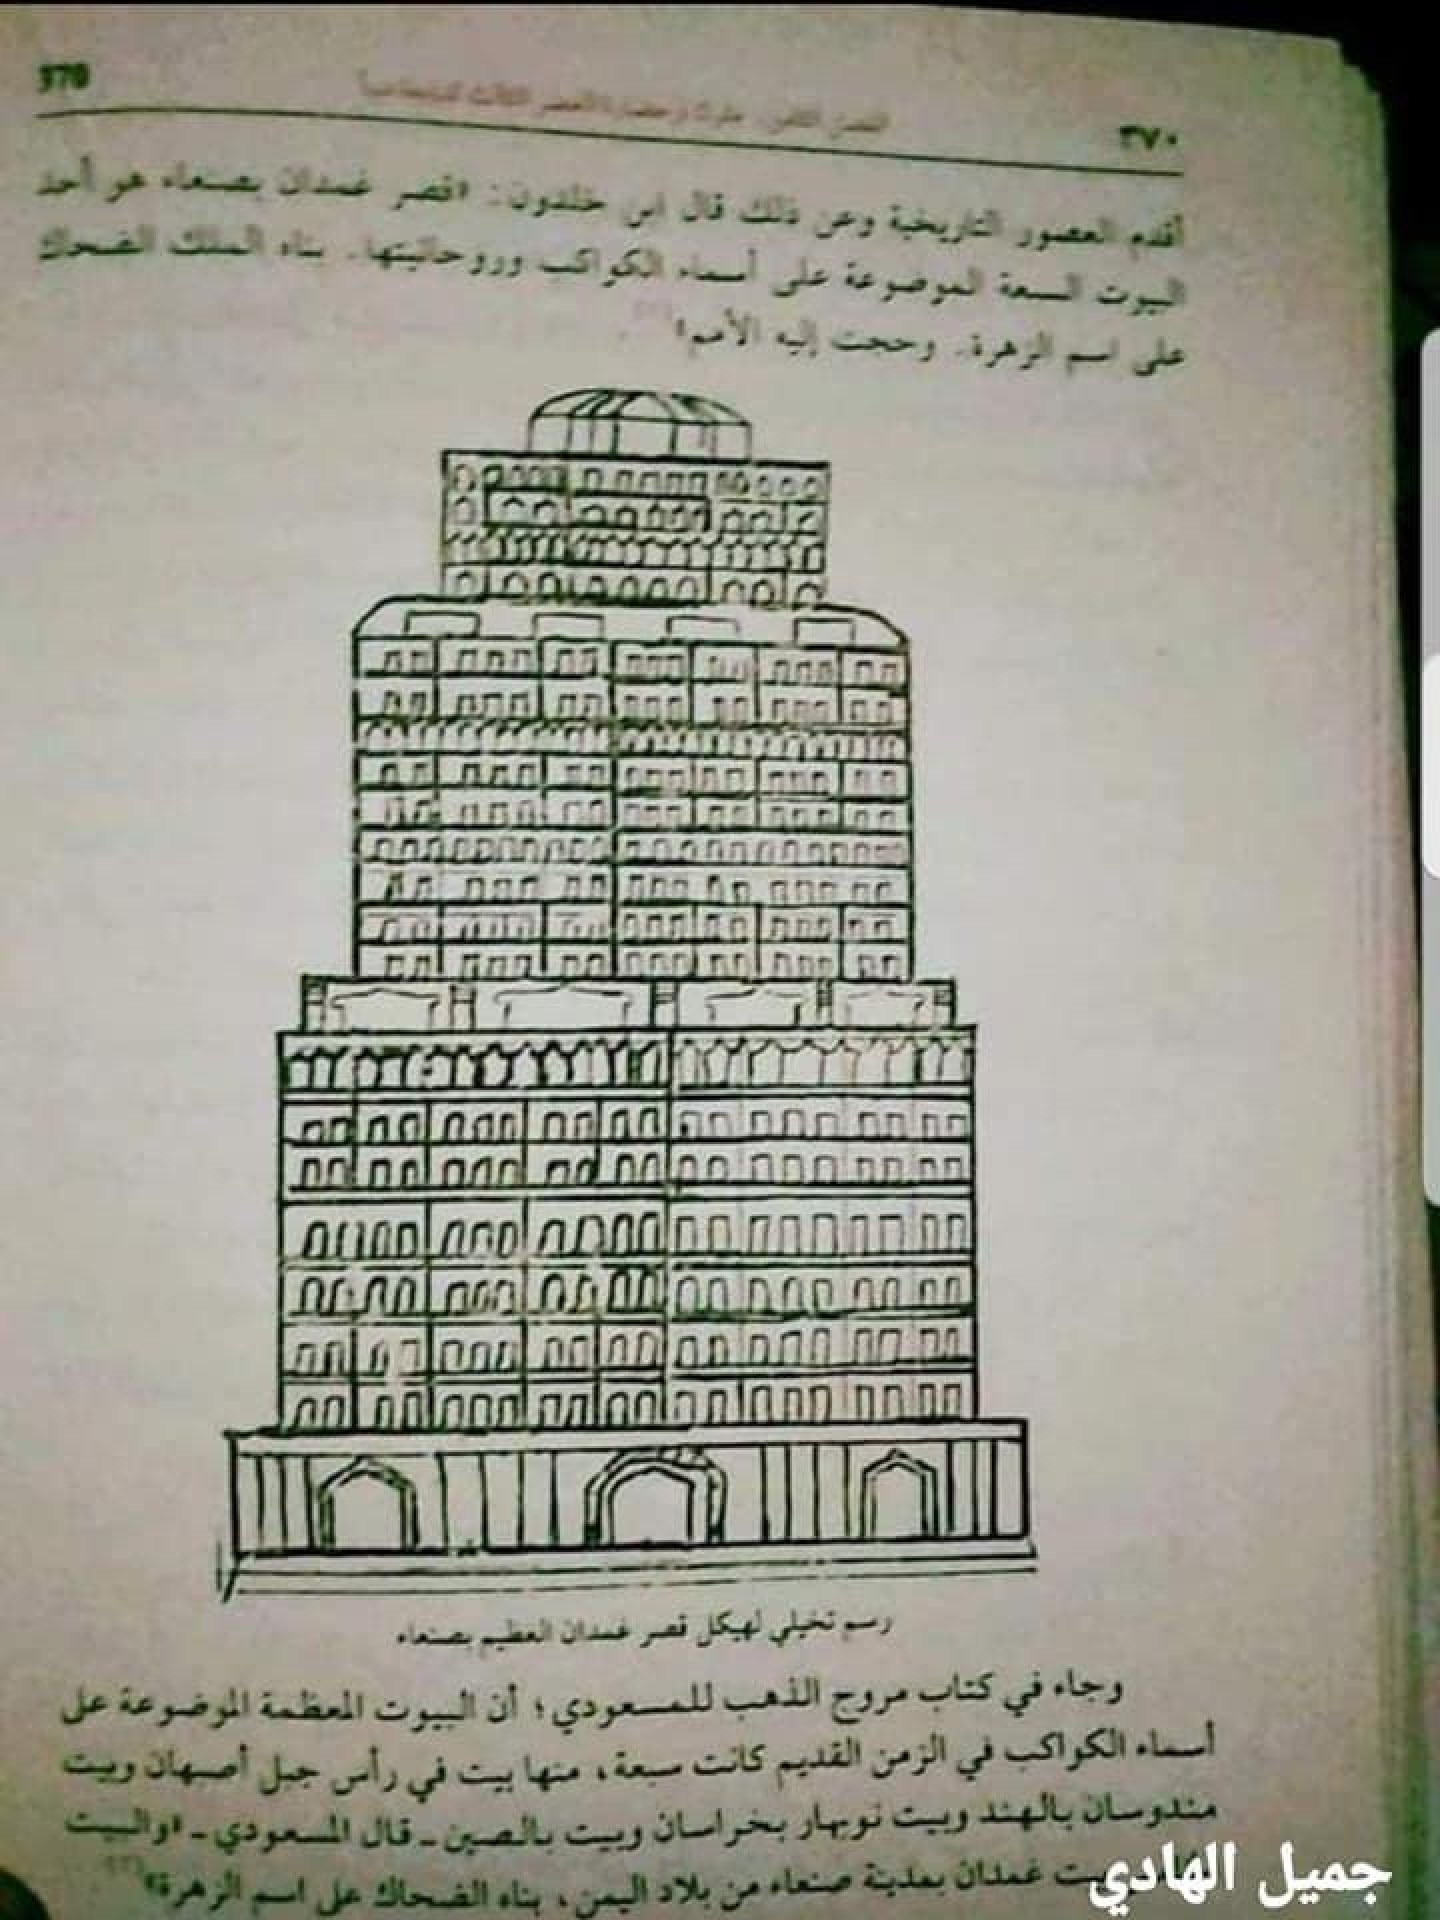 370
٣٧٠
أقدم العصور التاريخية وعن ذلك قال ابن خلدون: «قصر غمدان بصنعاء هو أحد
البيوت السبعة الموضوعة على أسماء الكواكب وروحانيتها. بناه الملك الضحاك
على اسم الزهرة. وحجت إليه الأمم»
رسم تخيلي لهيكل قصر غمدان العظيم بصنعاء
وجاء في كتاب مروج الذهب للمسعودي؛ أن البيوت المعظمة الموضوعة على
أسماء الكواكب في الزمن القديم كانت سبعة، منها بيت في رأس جبل أصبهان وبيت
مندوسان بالهند وبيت نوبهار بخراسان وبيت بالصين ـ قال المسعودي ـ «والبيت
بيت غمدان بمدينة صنعاء من بلاد اليمن، بناه الضحاك على اسم الزهرة»
جميل الهادي